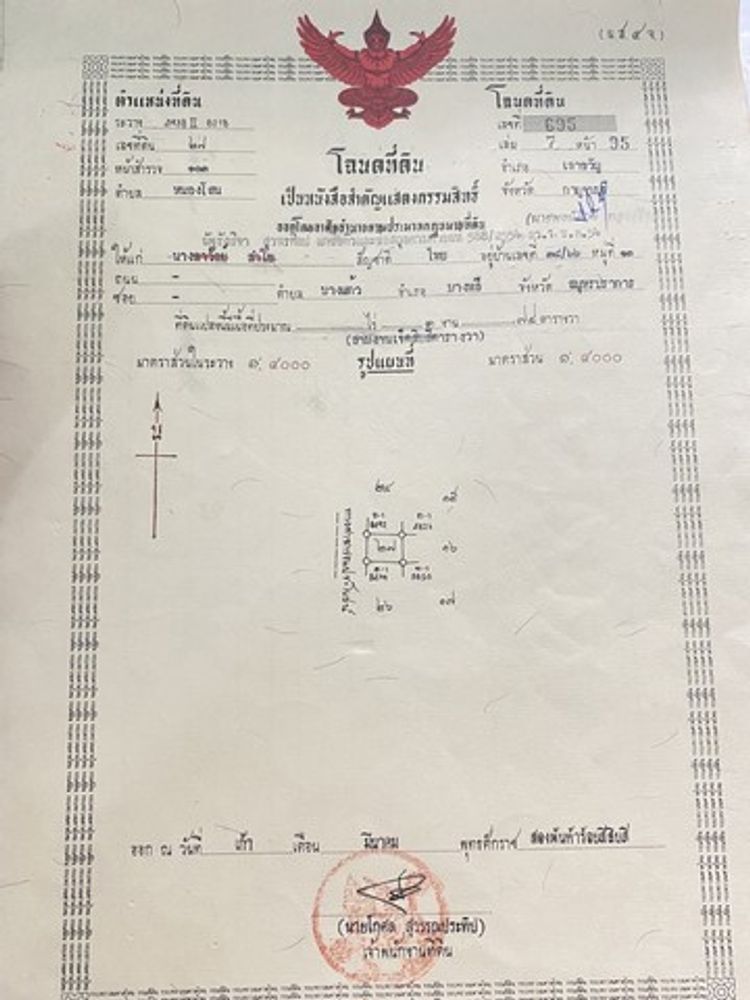 (น.ส.๔ จ)
ตำแหน่งที่ดิน
ระวาง II
เลขที่ดิน ๒๗
หน้าสำรวจ ๑๐๓
ตำบล หนองโสน
โฉนดที่ดิน
เลขที่ 695
เล่ม 7 หน้า 95
อำเภอ เลาขวัญ
จังหวัด กาญจนบุรี
โฉนดที่ดิน
เป็นหนังสือสำคัญแสดงกรรมสิทธิ์
ออกโดยอาศัยอำนาจตามประมวลกฎหมายที่ดิน
ให้แก่ สัญชาติ ไทย อยู่บ้านเลขที่ หมู่ที่ ๑๓
ถนน -
ซอย - ตำบล บางแก้ว อำเภอ บางพลี จังหวัด สมุทรปราการ
ที่ดินแปลงนี้มีเนื้อที่ประมาณ - ไร่ ๓ งาน ๗๔ ตารางวา
(สามงานเจ็ดสิบสี่ตารางวา)
มาตราส่วนในระวาง ๑: ๔๐๐๐
รูปแผนที่
มาตราส่วน ๑: ๔๐๐๐
น
๒๔
๑๕
๒๗
๑๖
๒๖
๑๗
ออก ณ วันที่ เก้า เดือน มีนาคม พุทธศักราช สองพันห้าร้อยสี่สิบสี่
(นายโกศล สุวรรณประทีป)
เจ้าพนักงานที่ดิน